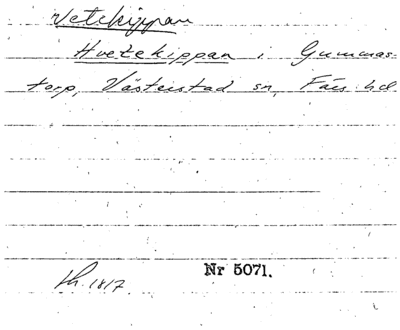 Vetekippan
Hvetekippan i Gummas-
torp, Västerstad sn, Färs hd
Nr 5071.
lh. 1817.